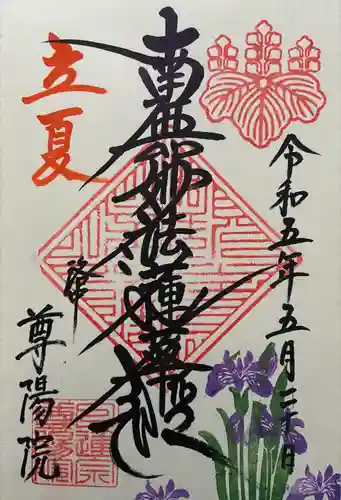 令和五年五月二十日
南無妙法蓮華経
立夏
尊陽院